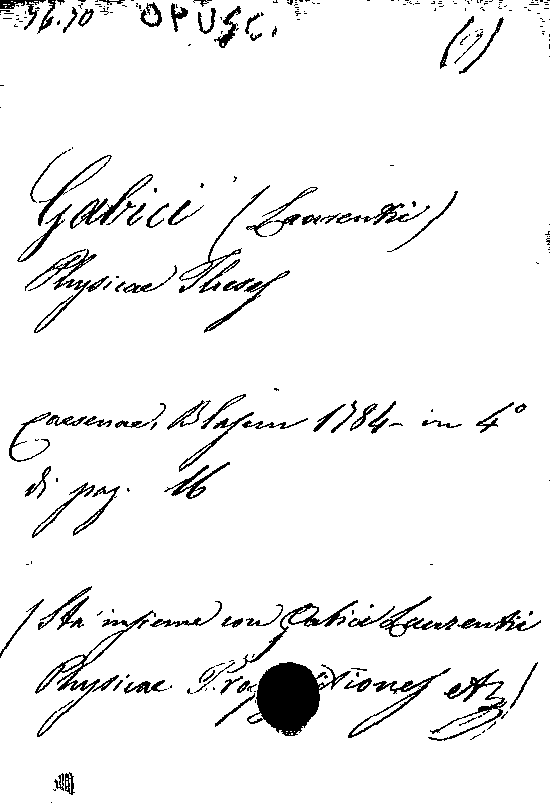 36.30 OPUSC. (9)
Gabici (Laurentii)
Physicae Theses
Caesenae, Blasini 1784 - in 4°
di pag. 16
(Sta insieme con Gabici Laurentii
Physicae etc)